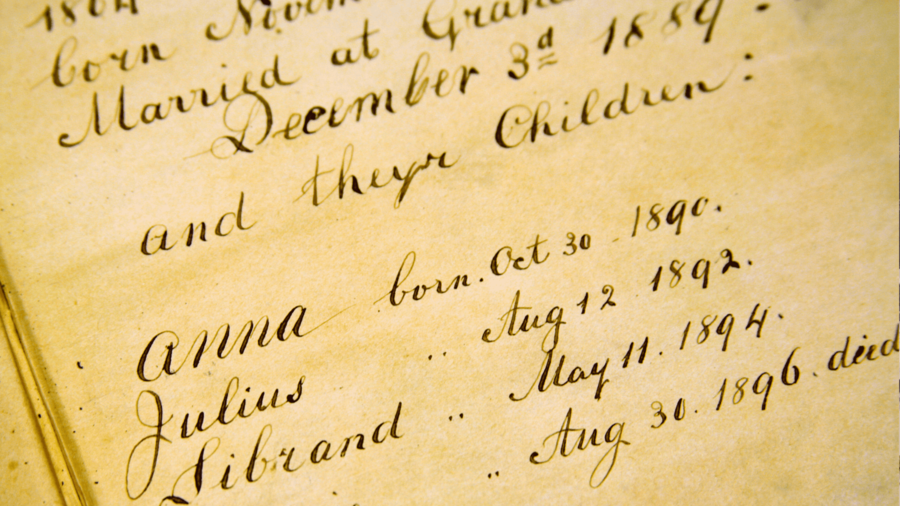 born
Married at
December 3d 1889.
and theyr Children:
Anna born. Oct 30 1890.
Julius " Aug 12 1892.
Sibrand " May 11. 1894.
" Aug 30. 1896. died